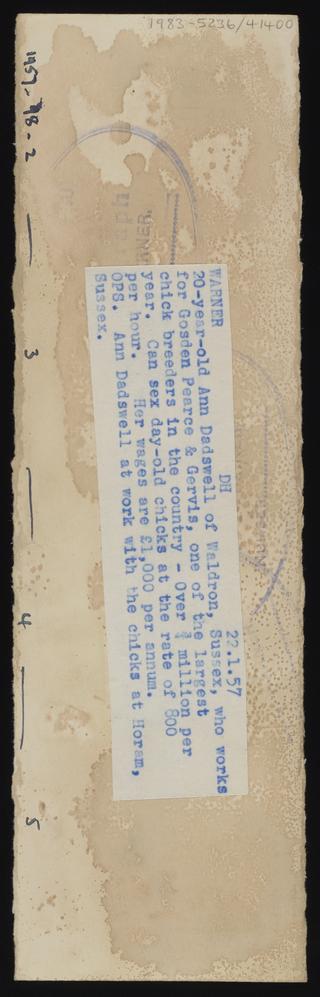 1983-5236/41400
1957-98-2 3 4 5
WARNER DH 22.1.57
20-year-old Ann Dadswell of Waldron, Sussex, who works
for Gosden Pearce & Gervis, one of the largest
chick breeders in the country - Over ¾ million per
year. Can sex day-old chicks at the rate of 800
per hour. Her wages are £1,000 per annum.
OPS. Ann Dadswell at work with the chicks at Horam,
Sussex.